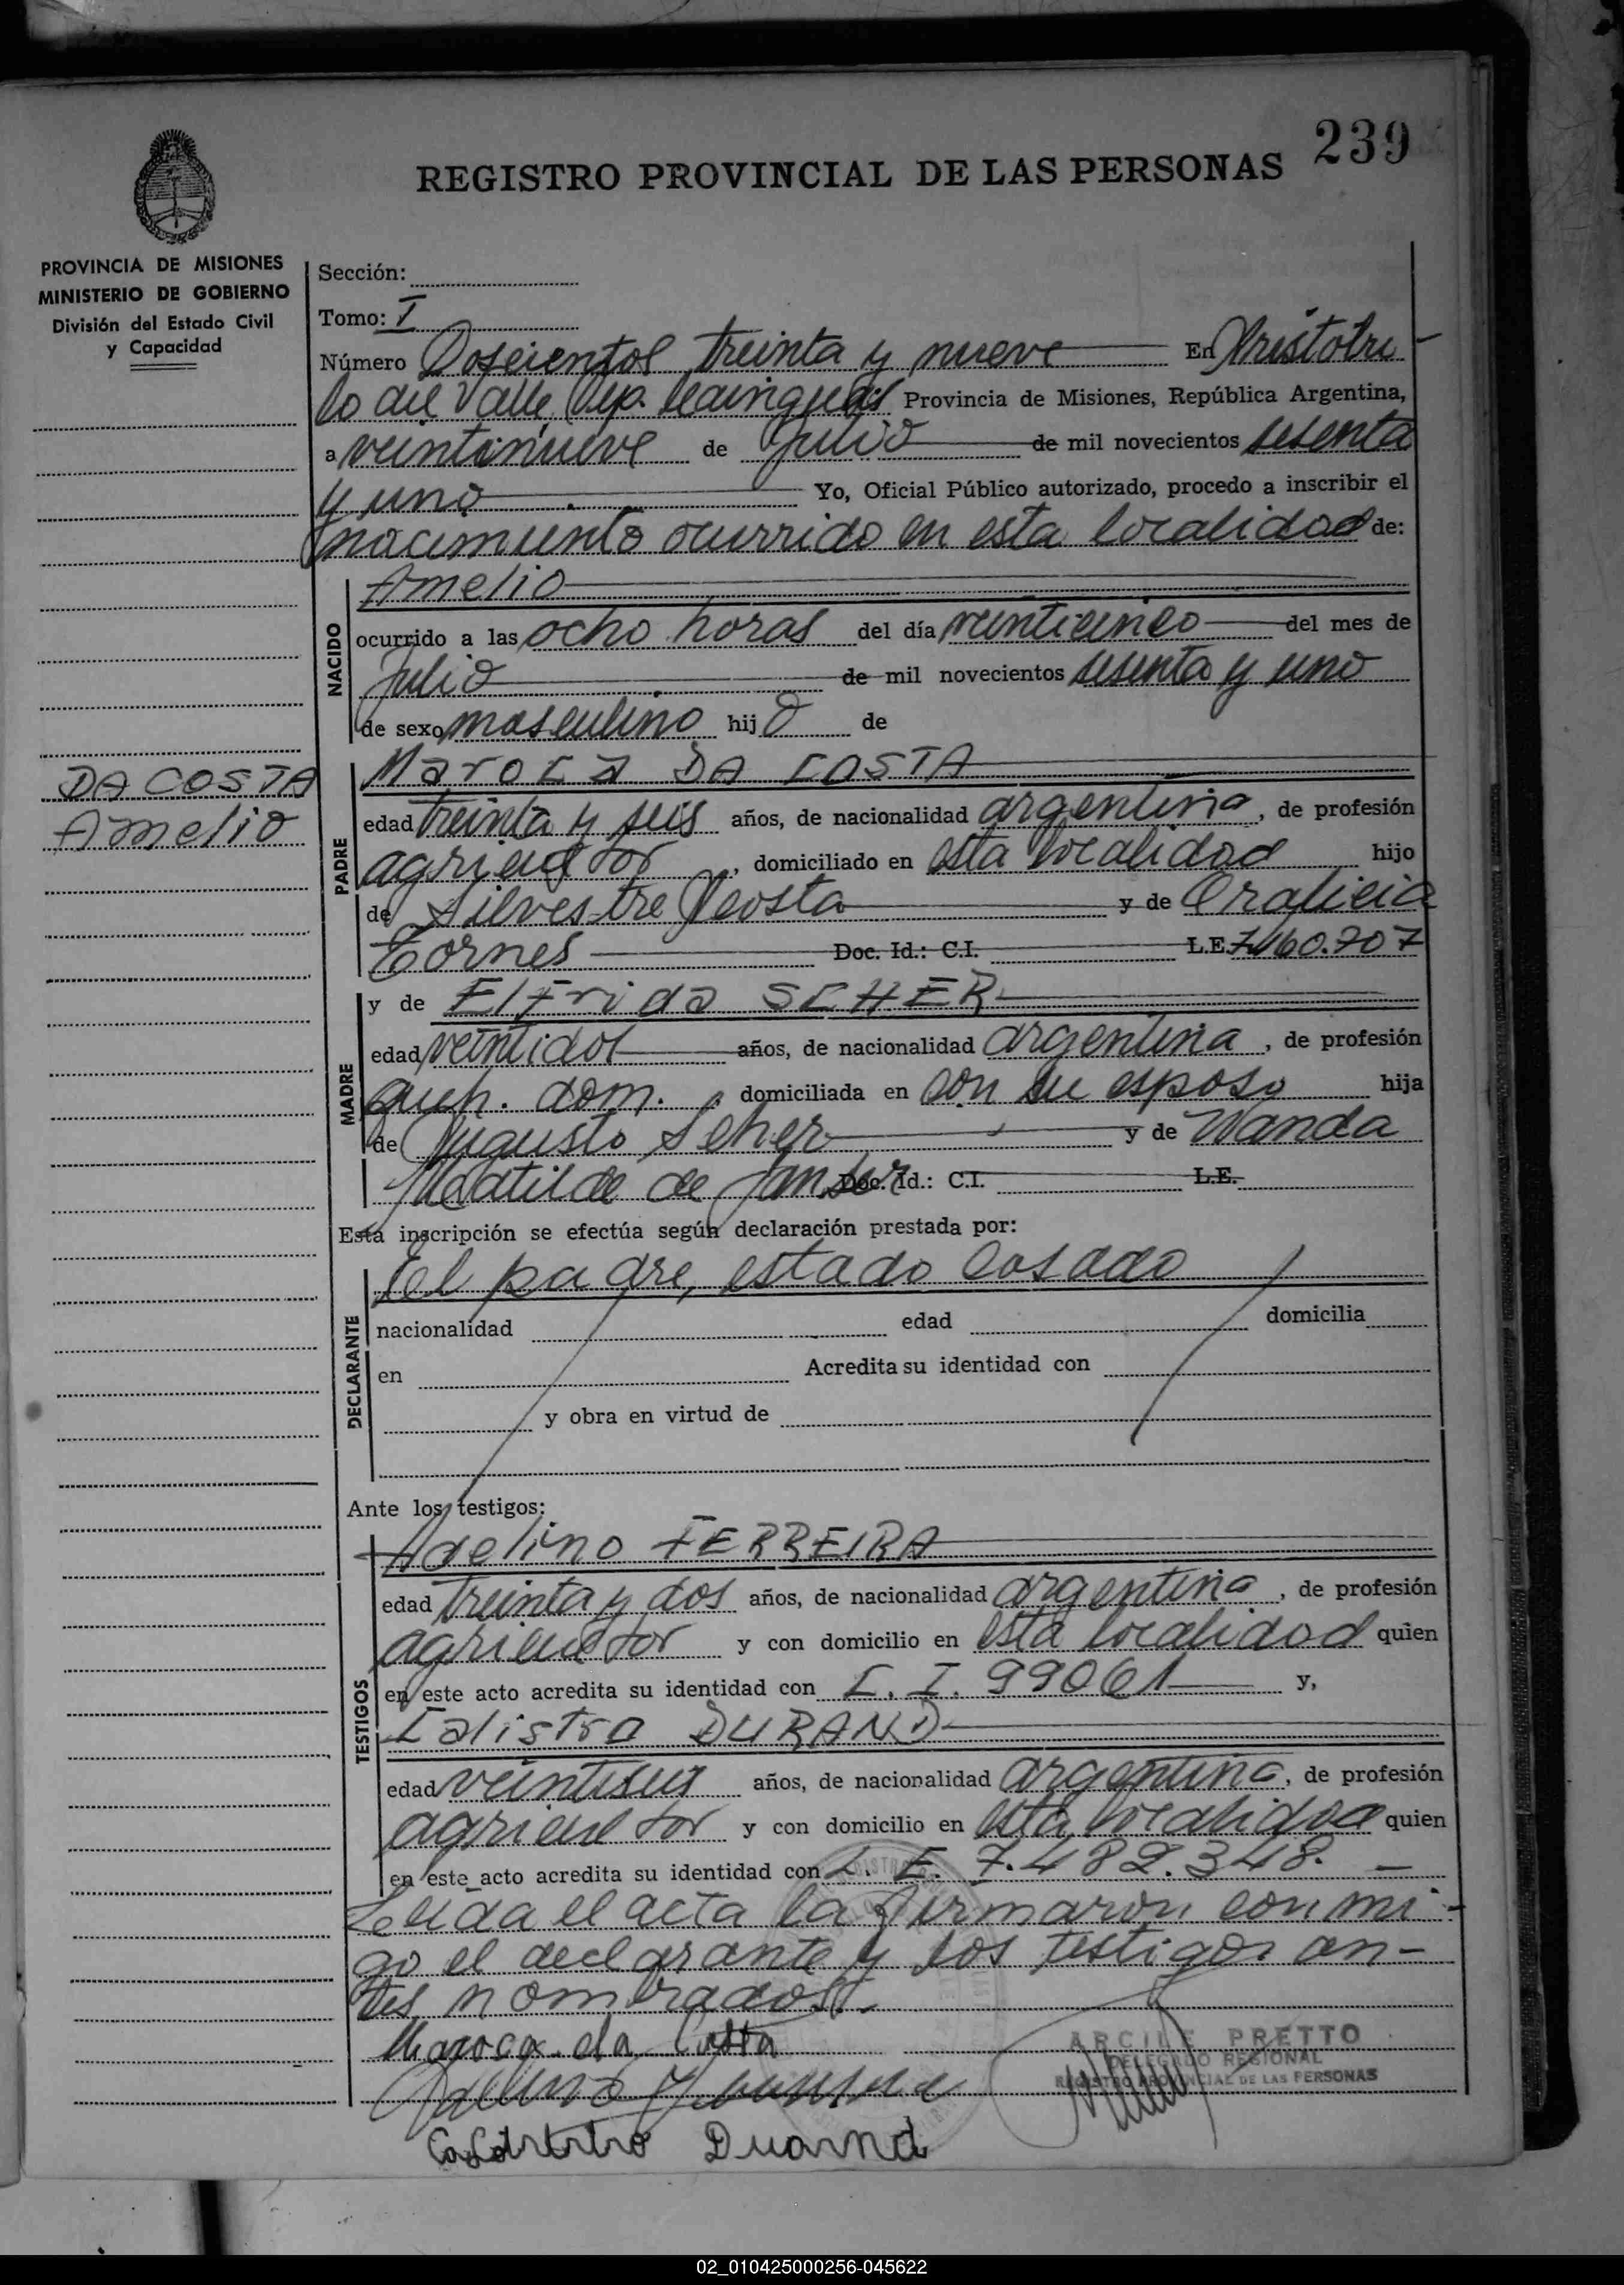 239
REGISTRO PROVINCIAL DE LAS PERSONAS
PROVINCIA DE MISIONES
MINISTERIO DE GOBIERNO
División del Estado Civil
y Capacidad
Sección:
Tomo: I
Número Doscientos treinta y nueve En Aristobu
lo del Valle, Dep. Cainguas Provincia de Misiones, República Argentina,
a veintinueve de Julio de mil novecientos sesenta
y uno Yo, Oficial Público autorizado, procedo a inscribir el
nacimiento ocurrido en esta localidad de:
NACIDO
Amelio
ocurrido a las ocho horas del día veinticinco del mes de
Julio de mil novecientos sesenta y uno
de sexo masculino hijo de
DA COSTA
Amelio
PADRE
Maroca DA COSTA
edad treinta y seis años, de nacionalidad argentina, de profesión
agricultor, domiciliado en esta localidad hijo
de Silvestre Acosta y de
Tornes Doc. Id.: C.I. L.E. 7.460.707
MADRE
y de Elfrida SCHER
edad veintidos años, de nacionalidad argentina, de profesión
queh. dom., domiciliada en con su esposo hija
de Augusto Scher y de Wanda
Matilde de Doc. Id.: C.I. L.E.
Esta inscripción se efectúa según declaración prestada por:
DECLARANTE
El padre, estado casado
nacionalidad edad domicilia
en Acredita su identidad con
y obra en virtud de
Ante los testigos:
TESTIGOS
Adelino FERREIRA
edad treinta y dos años, de nacionalidad argentina, de profesión
agricultor y con domicilio en esta localidad quien
en este acto acredita su identidad con C. I. 99061 y,
Calistro DURAND
edad veintiseis años, de nacionalidad argentina, de profesión
agricultor y con domicilio en esta localidad quien
en este acto acredita su identidad con L. E. 7.482.348.
Leida el acta la firmaron conmi-
go el declarante y los testigos an-
tes nombrados.-
Maroca da Costa
ARCILE PRETTO
DELEGADO REGIONAL
REGISTRO PROVINCIAL DE LAS PERSONAS
Duarnd
02_010425000256-045622